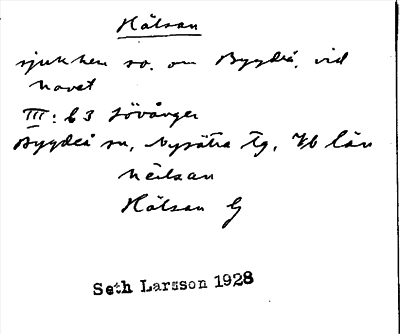 Hälsan
sjukhem so. om Bygdeå, vid
havet
III: b3 Lövånger
Bygdeå sn, Nysätra tg, Vb län
Hälsan G
Seth Larsson 1928